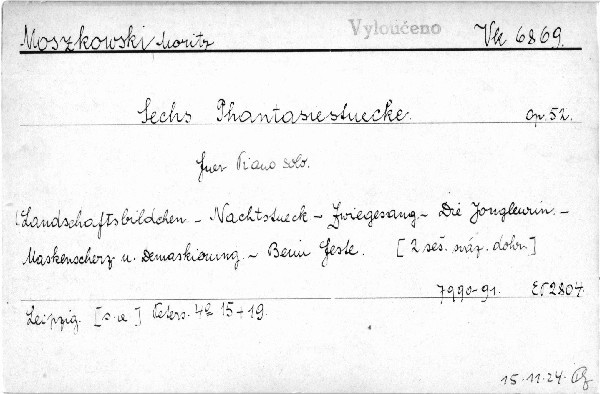 Moszkowski Moritz Vyloučeno Vk 6869.
Sechs Phantasiestuecke. op. 52.
fuer Piano solo.
(Landschaftsbildchen - Nachtstueck - Zwiegesang - Die Jongleurin. -
Maskenscherz u. Demaskierung - Beim Feste. [2 seš. sváz. dohr.]
7990-91. EP 2804.
Leipzig. [s.a] Peters. 4º 15+19.
15.11.24.